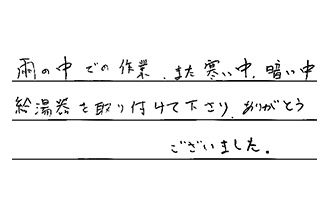 雨の中での作業、また寒い中、暗い中
給湯器を取り付けて下さり、ありがとう
ございました。